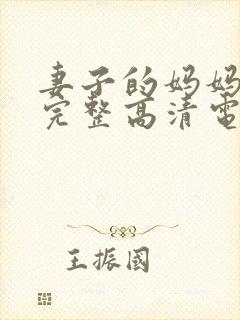 妻子的妈妈
完整高清电
王振國